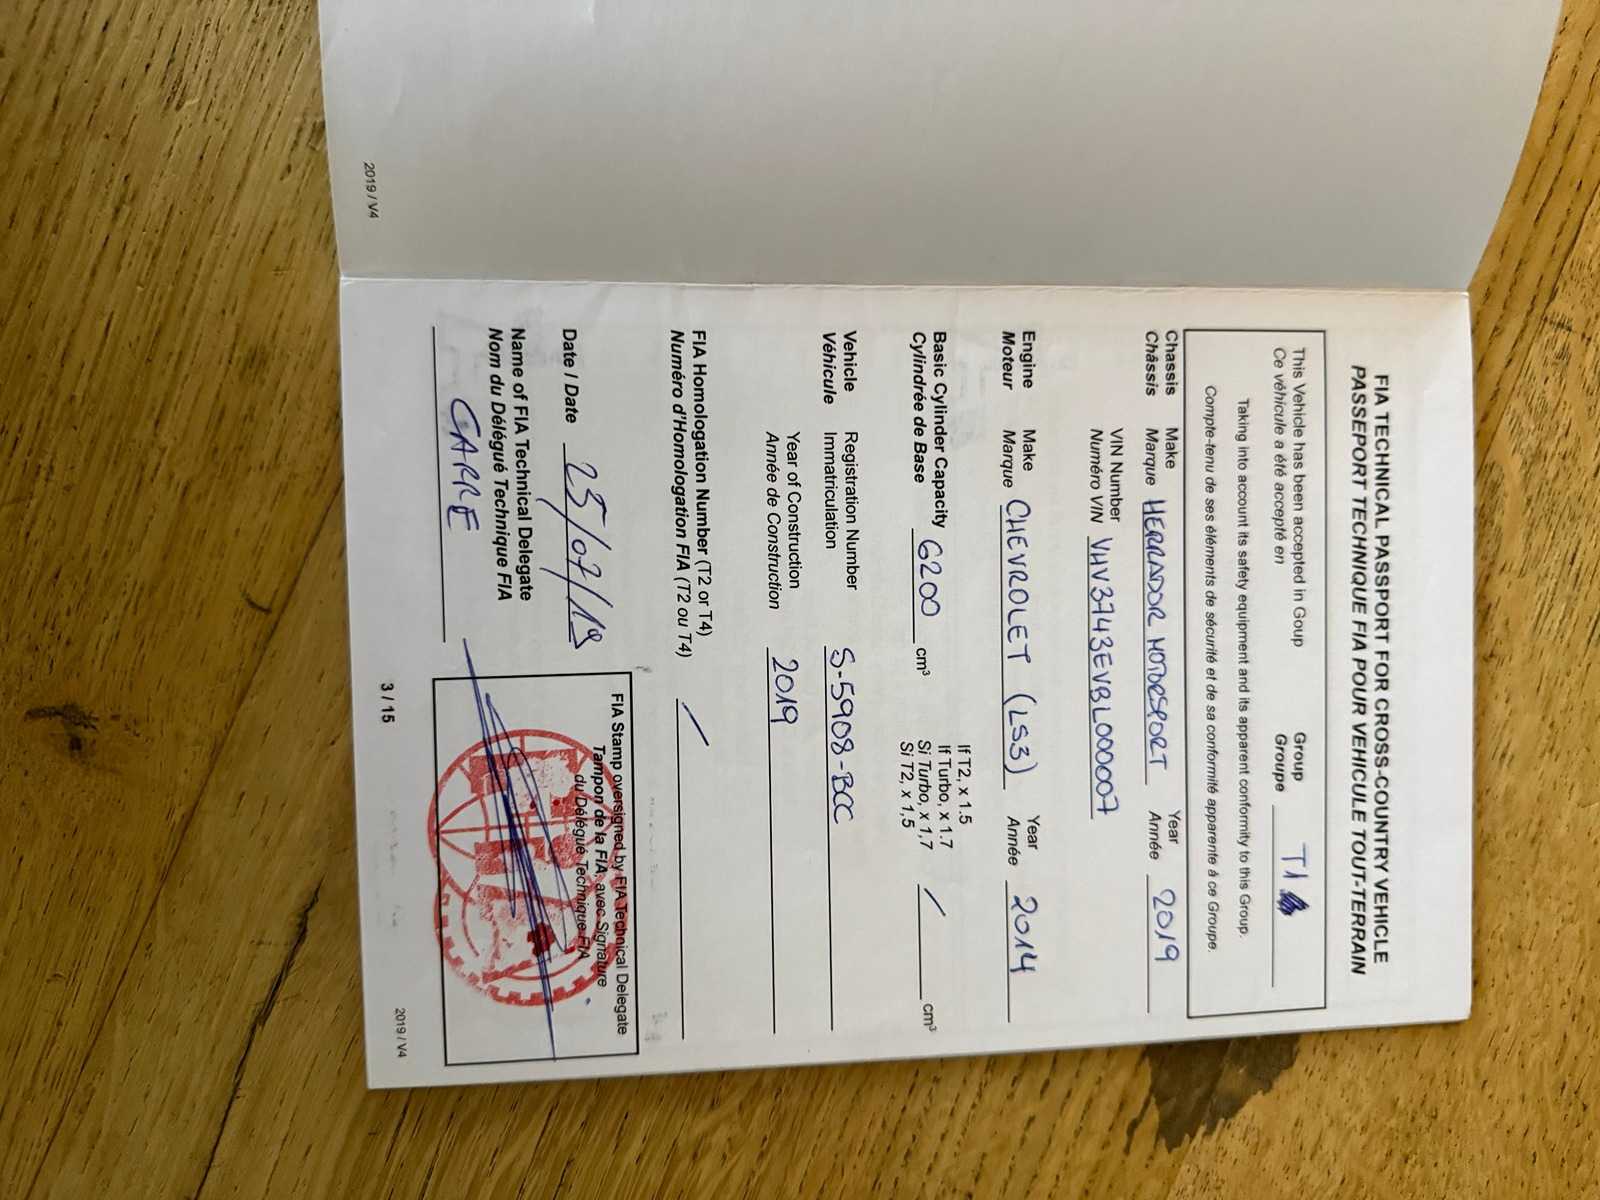 2019 / V4
FIA TECHNICAL PASSPORT FOR CROSS-COUNTRY VEHICLE
PASSEPORT TECHNIQUE FIA POUR VEHICULE TOUT-TERRAIN
This Vehicle has been accepted in Goup Group
Ce véhicule a été accepté en Groupe T1
Taking into account its safety equipment and its apparent conformity to this Group.
Compte-tenu de ses éléments de sécurité et de sa conformité apparente à ce Groupe.
Chassis Make Year
Châssis Marque HERRADOR MOTORSPORT Année 2019
VIN Number
Numéro VIN VHV3743EVBL000007
Engine Make Year
Moteur Marque CHEVROLET (LS3) Année 2014
Basic Cylinder Capacity 6200 cm³
Cylindrée de Base
If T2, x 1.5
If Turbo, x 1.7
Si Turbo, x 1,7 / cm³
Si T2, x 1,5
Vehicle Registration Number
Véhicule Immatriculation S-5908-BCC
Year of Construction
Année de Construction 2019
FIA Homologation Number (T2 or T4)
Numéro d'Homologation FIA (T2 ou T4) /
Date / Date 25/07/19
Name of FIA Technical Delegate
Nom du Délégué Technique FIA
CARRE
FIA Stamp oversigned by FIA Technical Delegate
Tampon de la FIA, avec Signature
du Délégué Technique FIA
3 / 15
2019 / V4